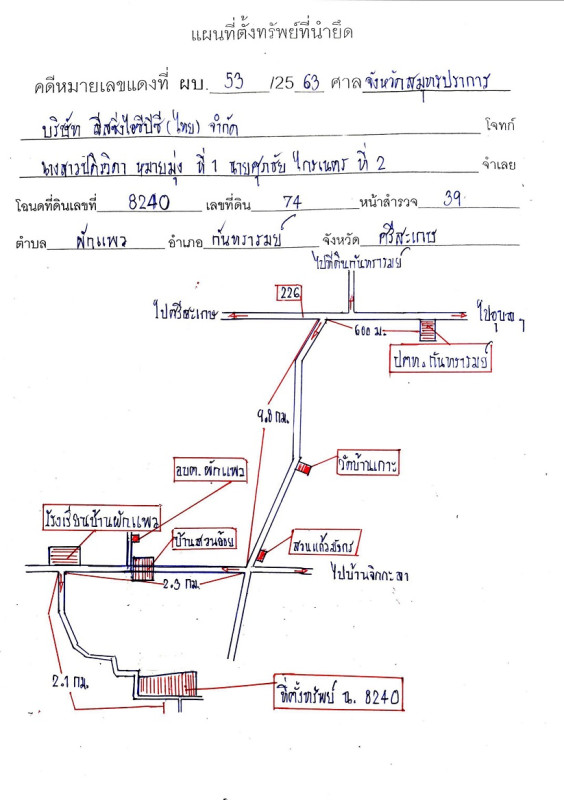 แผนที่ตั้งทรัพย์ที่นำยึด
คดีหมายเลขแดงที่ ผบ. 53 /25 63 ศาล จังหวัดสมุทรปราการ
บริษัท ลีสซิ่งไอซีบีซี (ไทย) จำกัด โจทก์
นางสาว หมายมุ่ง ที่ 1 นายศุภชัย ไกรเนตร ที่ 2 จำเลย
โฉนดที่ดินเลขที่ 8240 เลขที่ดิน 74 หน้าสำรวจ 39
ตำบล ผักแพว อำเภอ กันทรารมย์ จังหวัด ศรีสะเกษ
ไปที่ดินกันทรารมย์
226
ไปศรีสะเกษ
ไปอุบลฯ
600 ม.
ปตท.กันทรารมย์
9.8 กม.
อบต.ผักแพว
วัดบ้านเกาะ
โรงเรียนบ้านผักแพว
บ้านสวนอ้อย
สวนแก้วมังกร
ไปบ้านจิกกะลา
2.3 กม.
2.1 กม.
ที่ตั้งทรัพย์ น. 8240